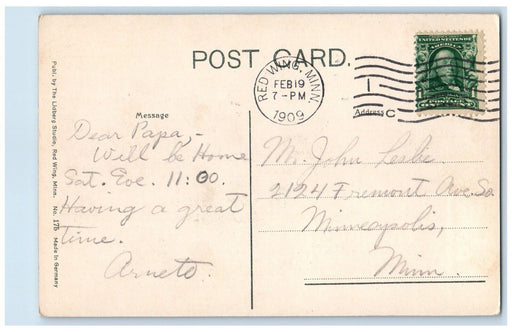 POST CARD.
Publ. by The Lidberg Studio, Red Wing, Minn. No. 175 Made in Germany
RED WING, MINN.
FEB 19
7-PM
1909
1
C
UNITED STATES OF AMERICA
Message
Address
Dear Papa,-
Will be Home
Sat. Eve. 11:00.
Having a great
time.
Mr. John Leslie
2124 Fremont Ave. So.
Minneapolis,
Minn.